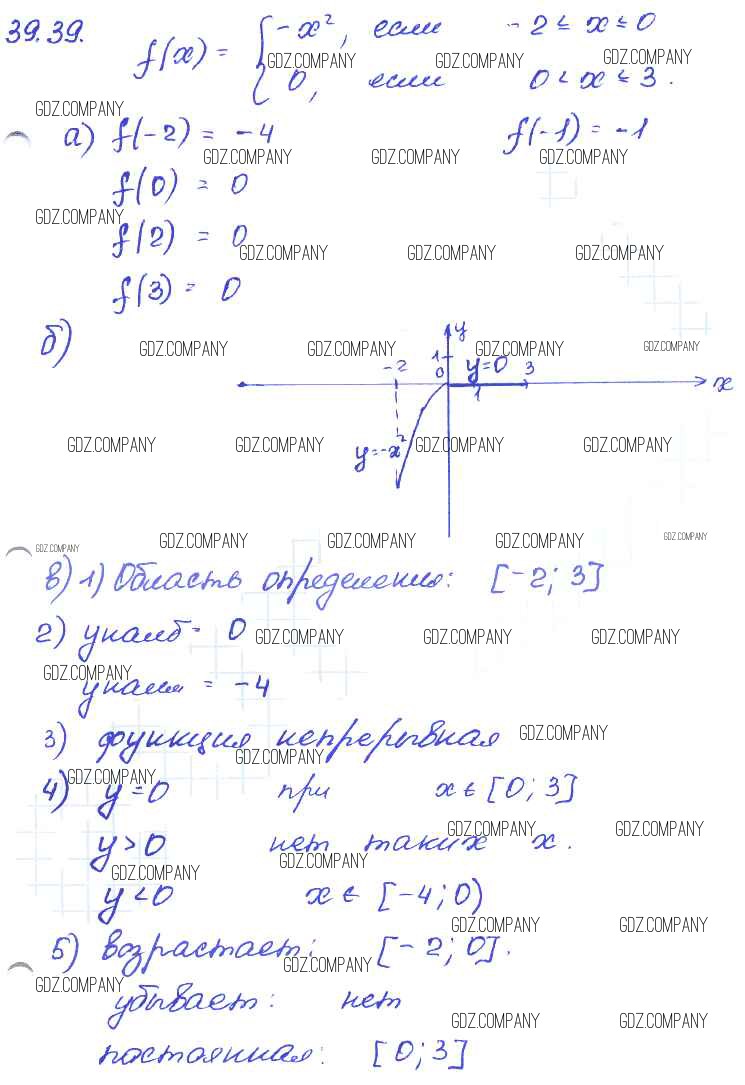 39.39.
f(x) = { -x², если -2 ≤ x ≤ 0
0, если 0 < x ≤ 3.
а) f(-2) = -4 f(-1) = -1
f(0) = 0
f(2) = 0
f(3) = 0
б)
y
1
-2 0 y=0 3
1 x
y=-x²
в) 1) Область определения: [-2; 3]
2) yнаиб = 0
yнаим = -4
3) функция непрерывная
4) y=0 при x ∈ [0; 3]
y>0 нет таких x.
y<0 x ∈ [-4; 0)
5) возрастает: [-2; 0].
убывает: нет
постоянная: [0; 3]
GDZ.COMPANY